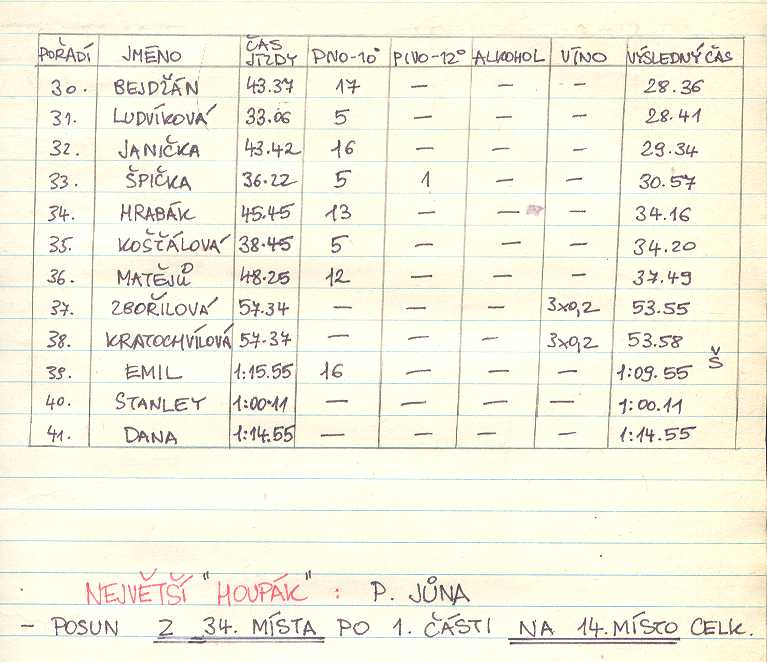 POŘADÍ JMÉNO ČAS JÍZDY PIVO-10° PIVO-12° ALKOHOL VÍNO VÝSLEDNÝ ČAS
30. BEJDŽÁN 43.37 17 — — — 28.36
31. LUDVÍKOVÁ 33.06 5 — — — 28.41
32. JANIČKA 43.42 16 — — — 29.34
33. ŠPIČKA 36.22 5 1 — — 30.57
34. HRABÁK 45.45 13 — — — 34.16
35. KOŠŤÁLOVÁ 38.45 5 — — — 34.20
36. MATĚJŮ 48.25 12 — — — 37.49
37. ZBOŘILOVÁ 57.34 — — — 3x0,2 53.55
38. KRATOCHVÍLOVÁ 57.37 — — — 3x0,2 53.58
39. EMIL 1:15.55 16 — — — 1:09.55 Š
40. STANLEY 1:00.11 — — — — 1:00.11
41. DANA 1:14.55 — — — — 1:14.55
NEJVĚTŠÍ "HOUPÁK" : P. JŮNA
- POSUN Z 34. MÍSTA PO 1. ČÁSTI NA 14. MÍSTO CELK.